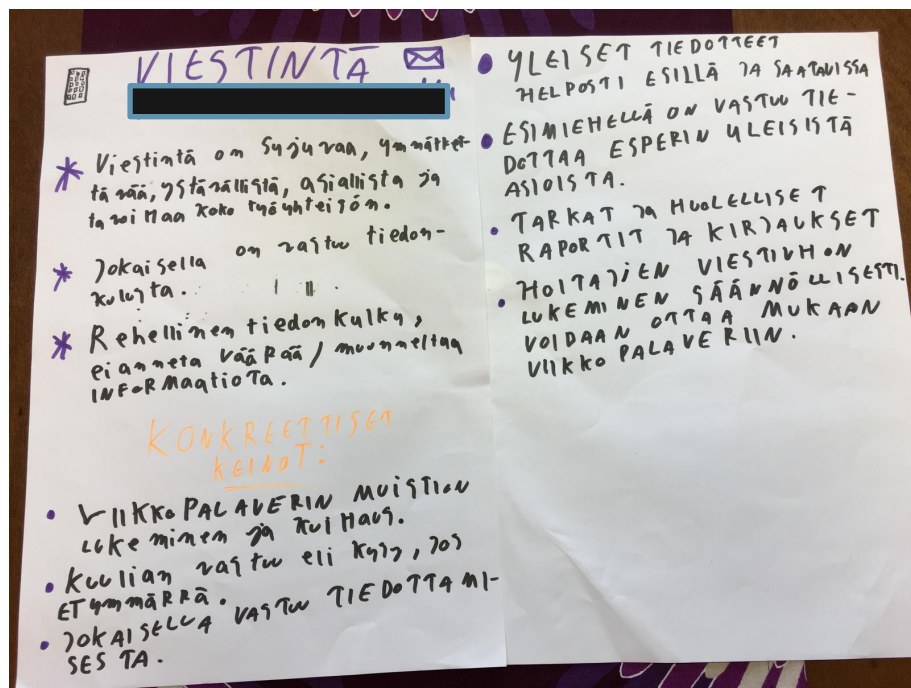 VIESTINTÄ
* Viestintä on sujuvaa, ymmärret-
tävää, ystävällistä, asiallista ja
tavoittaa koko työyhteisön.
* Jokaisella on vastuu tiedon-
kulusta.
* Rehellinen tiedonkulku,
ei anneta väärää / muunneltua
INFORMaatiota.
KONKREETTISET
KEINOT:
• VIIKKOPALAVERIN MUISTION
lukeminen ja kuittaus.
• Kuulijan vastuu eli kysy, jos
ET ymmäRRä.
• JOKAISELLA VASTUU TIEDOTTAMI-
SESTA.
• YLEISET TIEDOTTEET
HELPOSTI ESILLÄ JA SAATAVISSA
• ESIMIEHELLÄ ON VASTUU TIE-
DOTTAA ESPERIN YLEISISTÄ
ASIOISTA.
• TARKAT JA HUOLELLISET
RAPORTIT JA KIRJAUKSET
• HOITAJIEN VIESTIVIHON
LUKEMINEN SÄÄNNÖLLISESTI.
VOIDAAN OTTAA MUKAAN
VIIKKOPALAVERIIN.